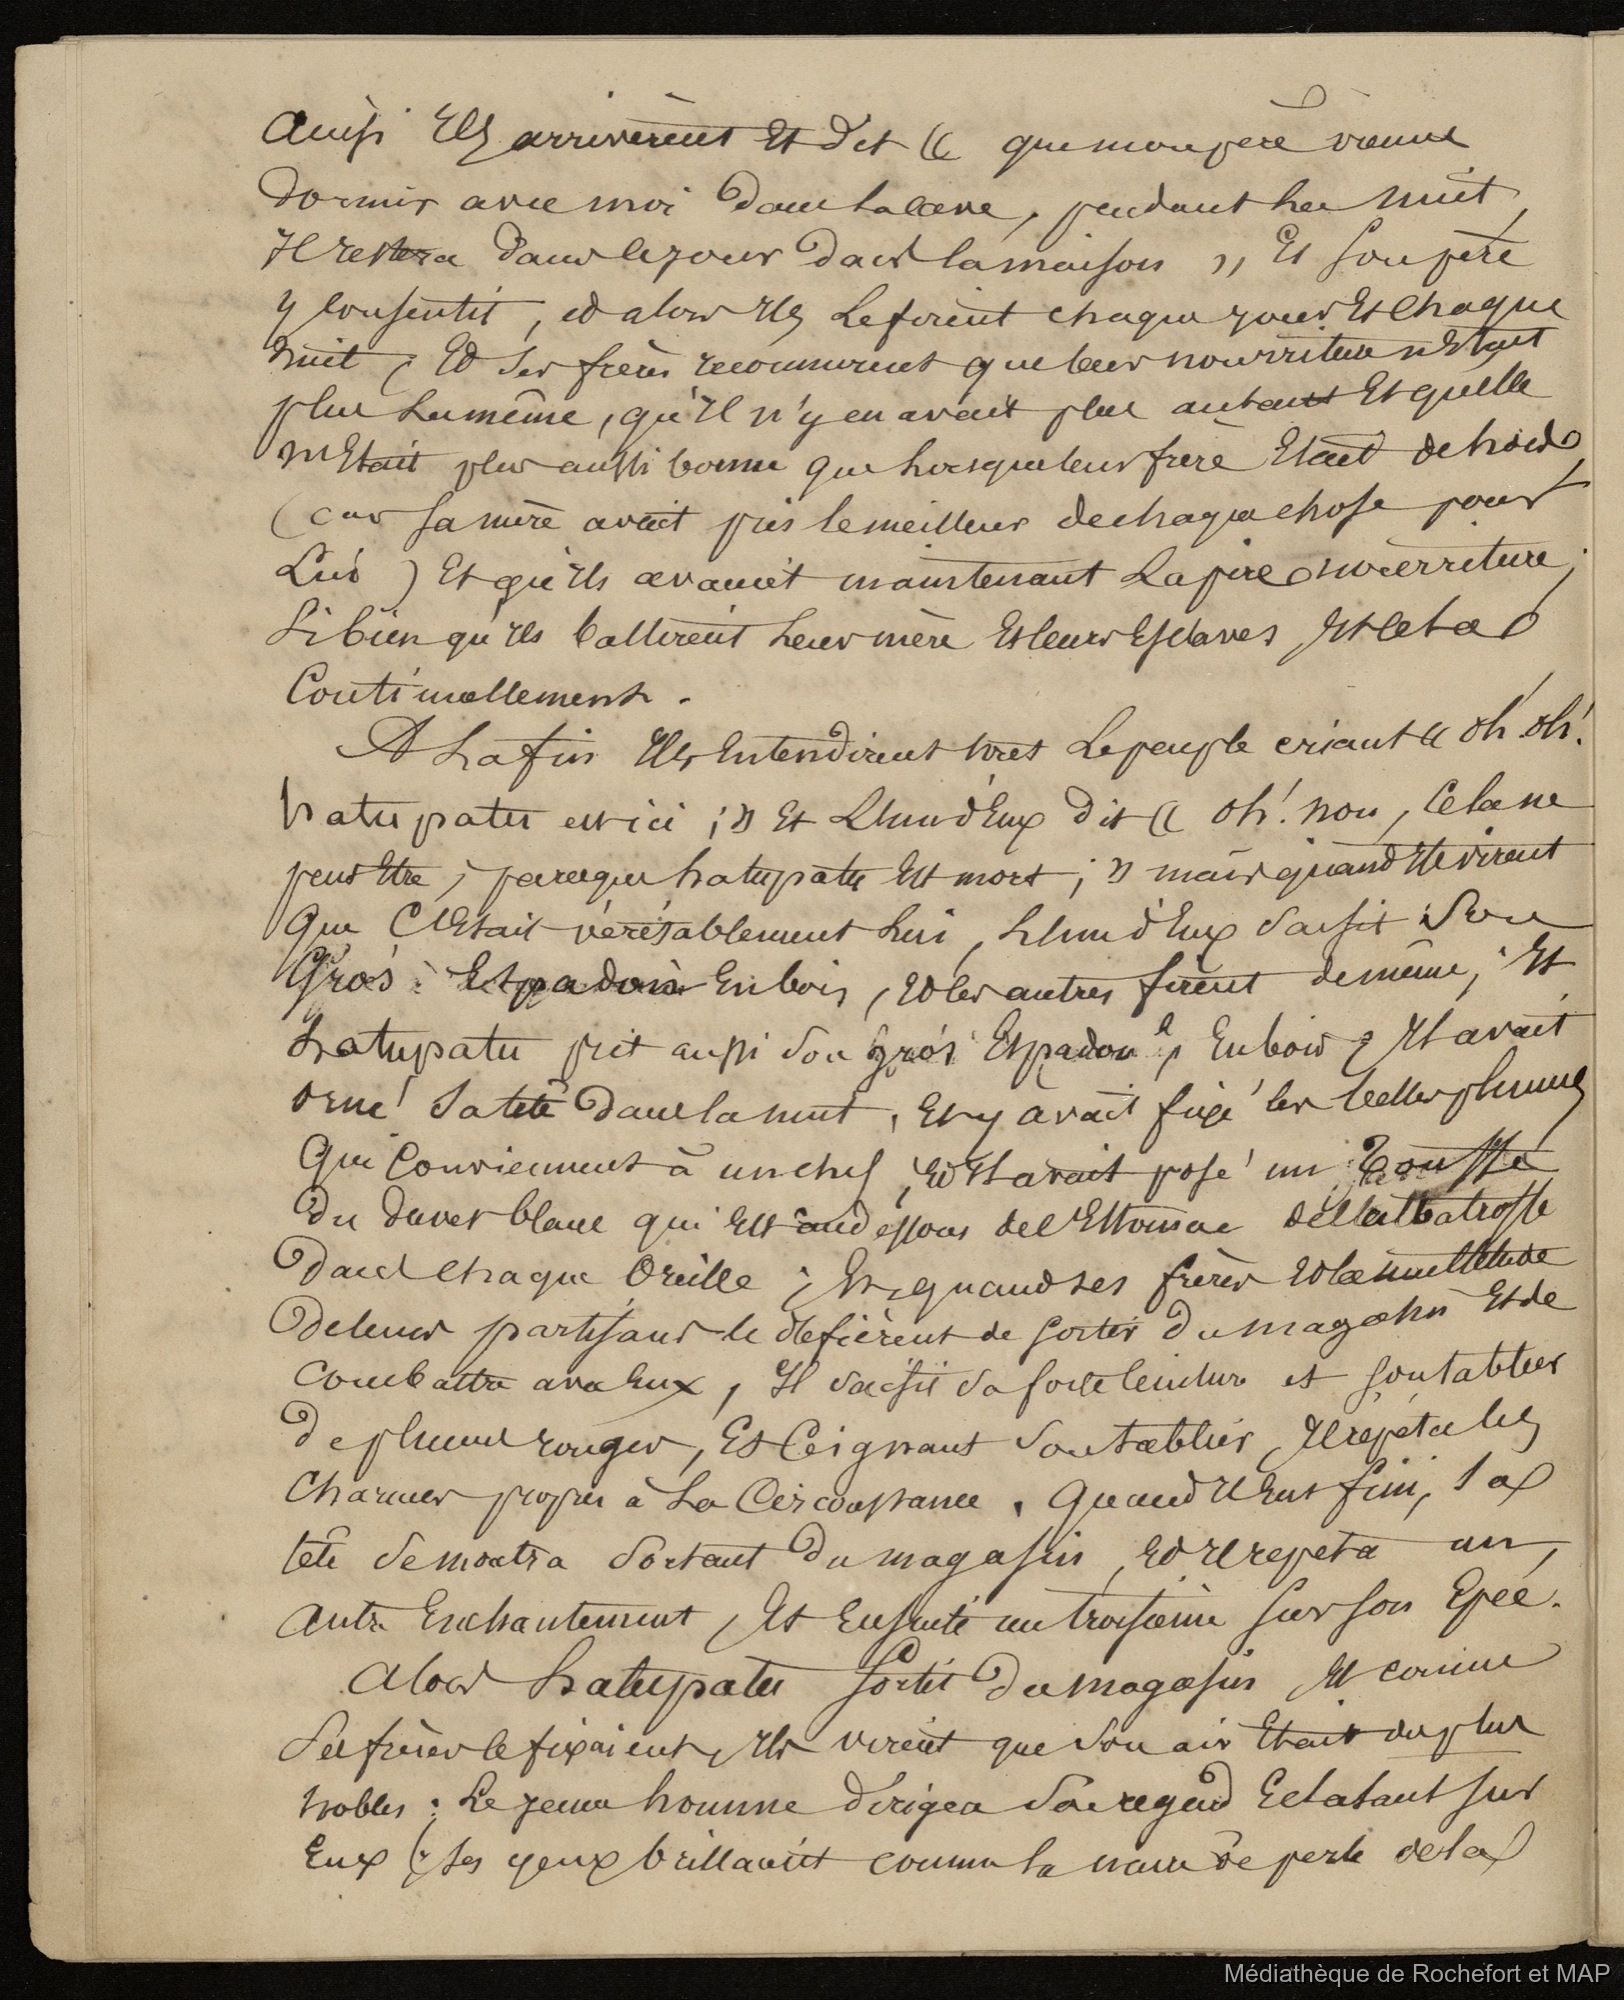 Ainsi Ils arrivèrent Et dit (( que mon père vienne
dormir avec moi dans la cave, pendant la nuit,
Il restera dans le jour dans la maison )), Et son père
y consentit, et alors Ils Le firent chaque jour Et chaque
nuit, Et ses frères reconnurent que leur nourriture n'Etait
plus La même, qu'Il n'y en avait plus autant Et qu'elle
n'Etait plus aussi bonne que Lorsque leur frère Etait dehors
(car sa mère avait pris le meilleur de chaque chose pour
Lui) Et qu'Ils avaient maintenant La pire nourriture;
Si bien qu'Ils battirent Leur mère Et leurs Esclaves Et cela
Continuellement.
A La fin Ils Entendirent tout Le peuple criant (( oh! oh!
hatupatu est ici ; )) Et L'un d'Eux dit (( oh! non, Cela ne
peut Etre, parceque hatupatu Est mort ; )) mais quand Ils virent
que C'Etait véritablement Lui, L'un d'Eux saisit Son
Gros Espadon En bois, Et les autres firent de même; Et
hatupatu prit aussi son gros Espadon En bois; Il avait
orné Sa tête dans la nuit, Et y avait fixé les belles plumes
Qui Conviennent à un chef, Et Il avait posé un Touffe
Du duvet blanc qui Est au dessous de l'Estomac de l'albatrosse
Dans chaque Oreille; Et quand ses frères Et la multitude
De leurs partisans le défièrent de sortir Du magasin Et de
Combattre avec Eux, Il saisit sa forte Ceinture et son tablier
De plumes rouges, Et Ceignant son tablier, Il répéta les
Charmes propres à La Circonstance. Quand Il Eut fini, Sa
tête se montra sortant Du magasin, Et Il repeta un
autre Enchantement, Et Ensuite un troisième sur son Epée.
Alors hatupatu Sortit Du magasin Et comme
Ses frères le fixaient, Ils virent que son air Etait du plus
nobles; Le jeune homme dirigea son regard Eclatant sur
Eux (Ses yeux brillaient comme la nacre de perle de la